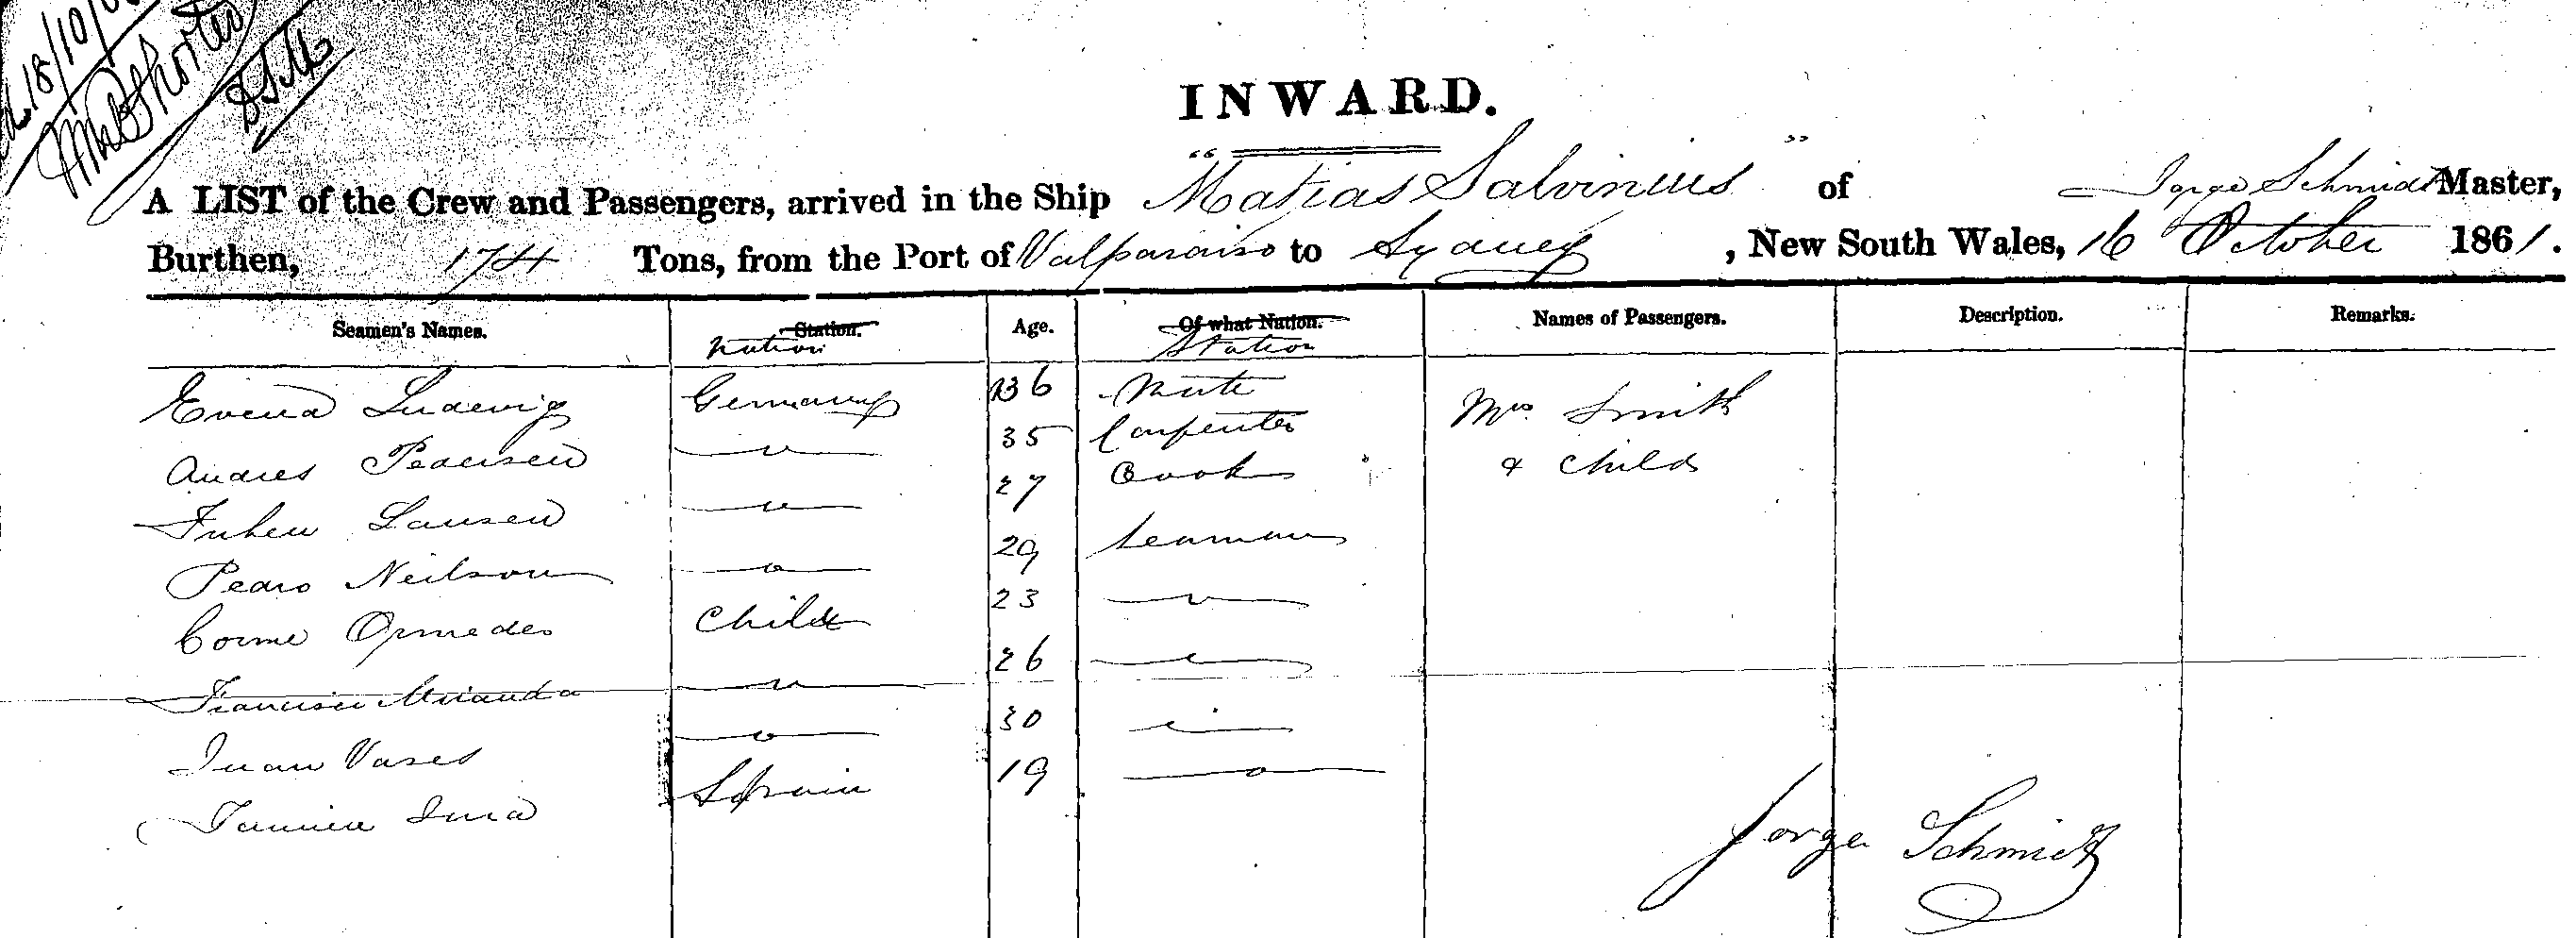 18/10/
INWARD.
A LIST of the Crew and Passengers, arrived in the Ship "Matias Salvinius" of Jorge Schmidt Master,
Burthen, 174 Tons, from the Port of Valparaiso to Sydney, New South Wales, 16 October 1861.
Seamen's Names. Station. Age. Of what Nation. Names of Passengers. Description. Remarks.
Nation Station
Ludwig Germany 36 Mate Mrs. Smith
Andres Pedersen " 35 Carpenter & Child
Lausen " 27 Cook
Pedro Neilson " 29 Seaman
Cosme Ormedes Chile 23 "
Francisco Miranda " 26 "
Juan Vases " 30 "
Spain 19 "
Jorge Schmidt